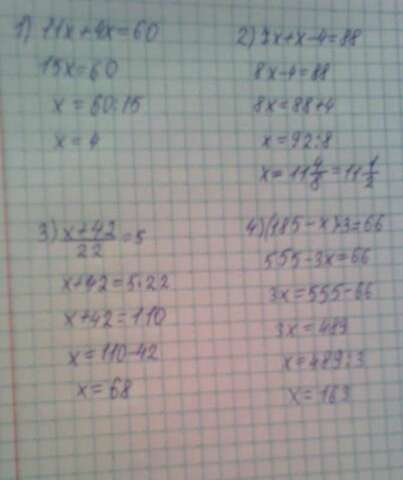 1) 11x+4x=60
15x=60
x = 60:15
x = 4
2) 7x+x-4=88
8x-4=88
8x=88+4
x=92:8
x=11 4/8 = 11 1/2
3) x+42/22 = 5
x+42=5·22
x+42=110
x=110-42
x=68
4) (185-x)·3=66
555-3x=66
3x=555-66
3x=489
x=489:3
x=163